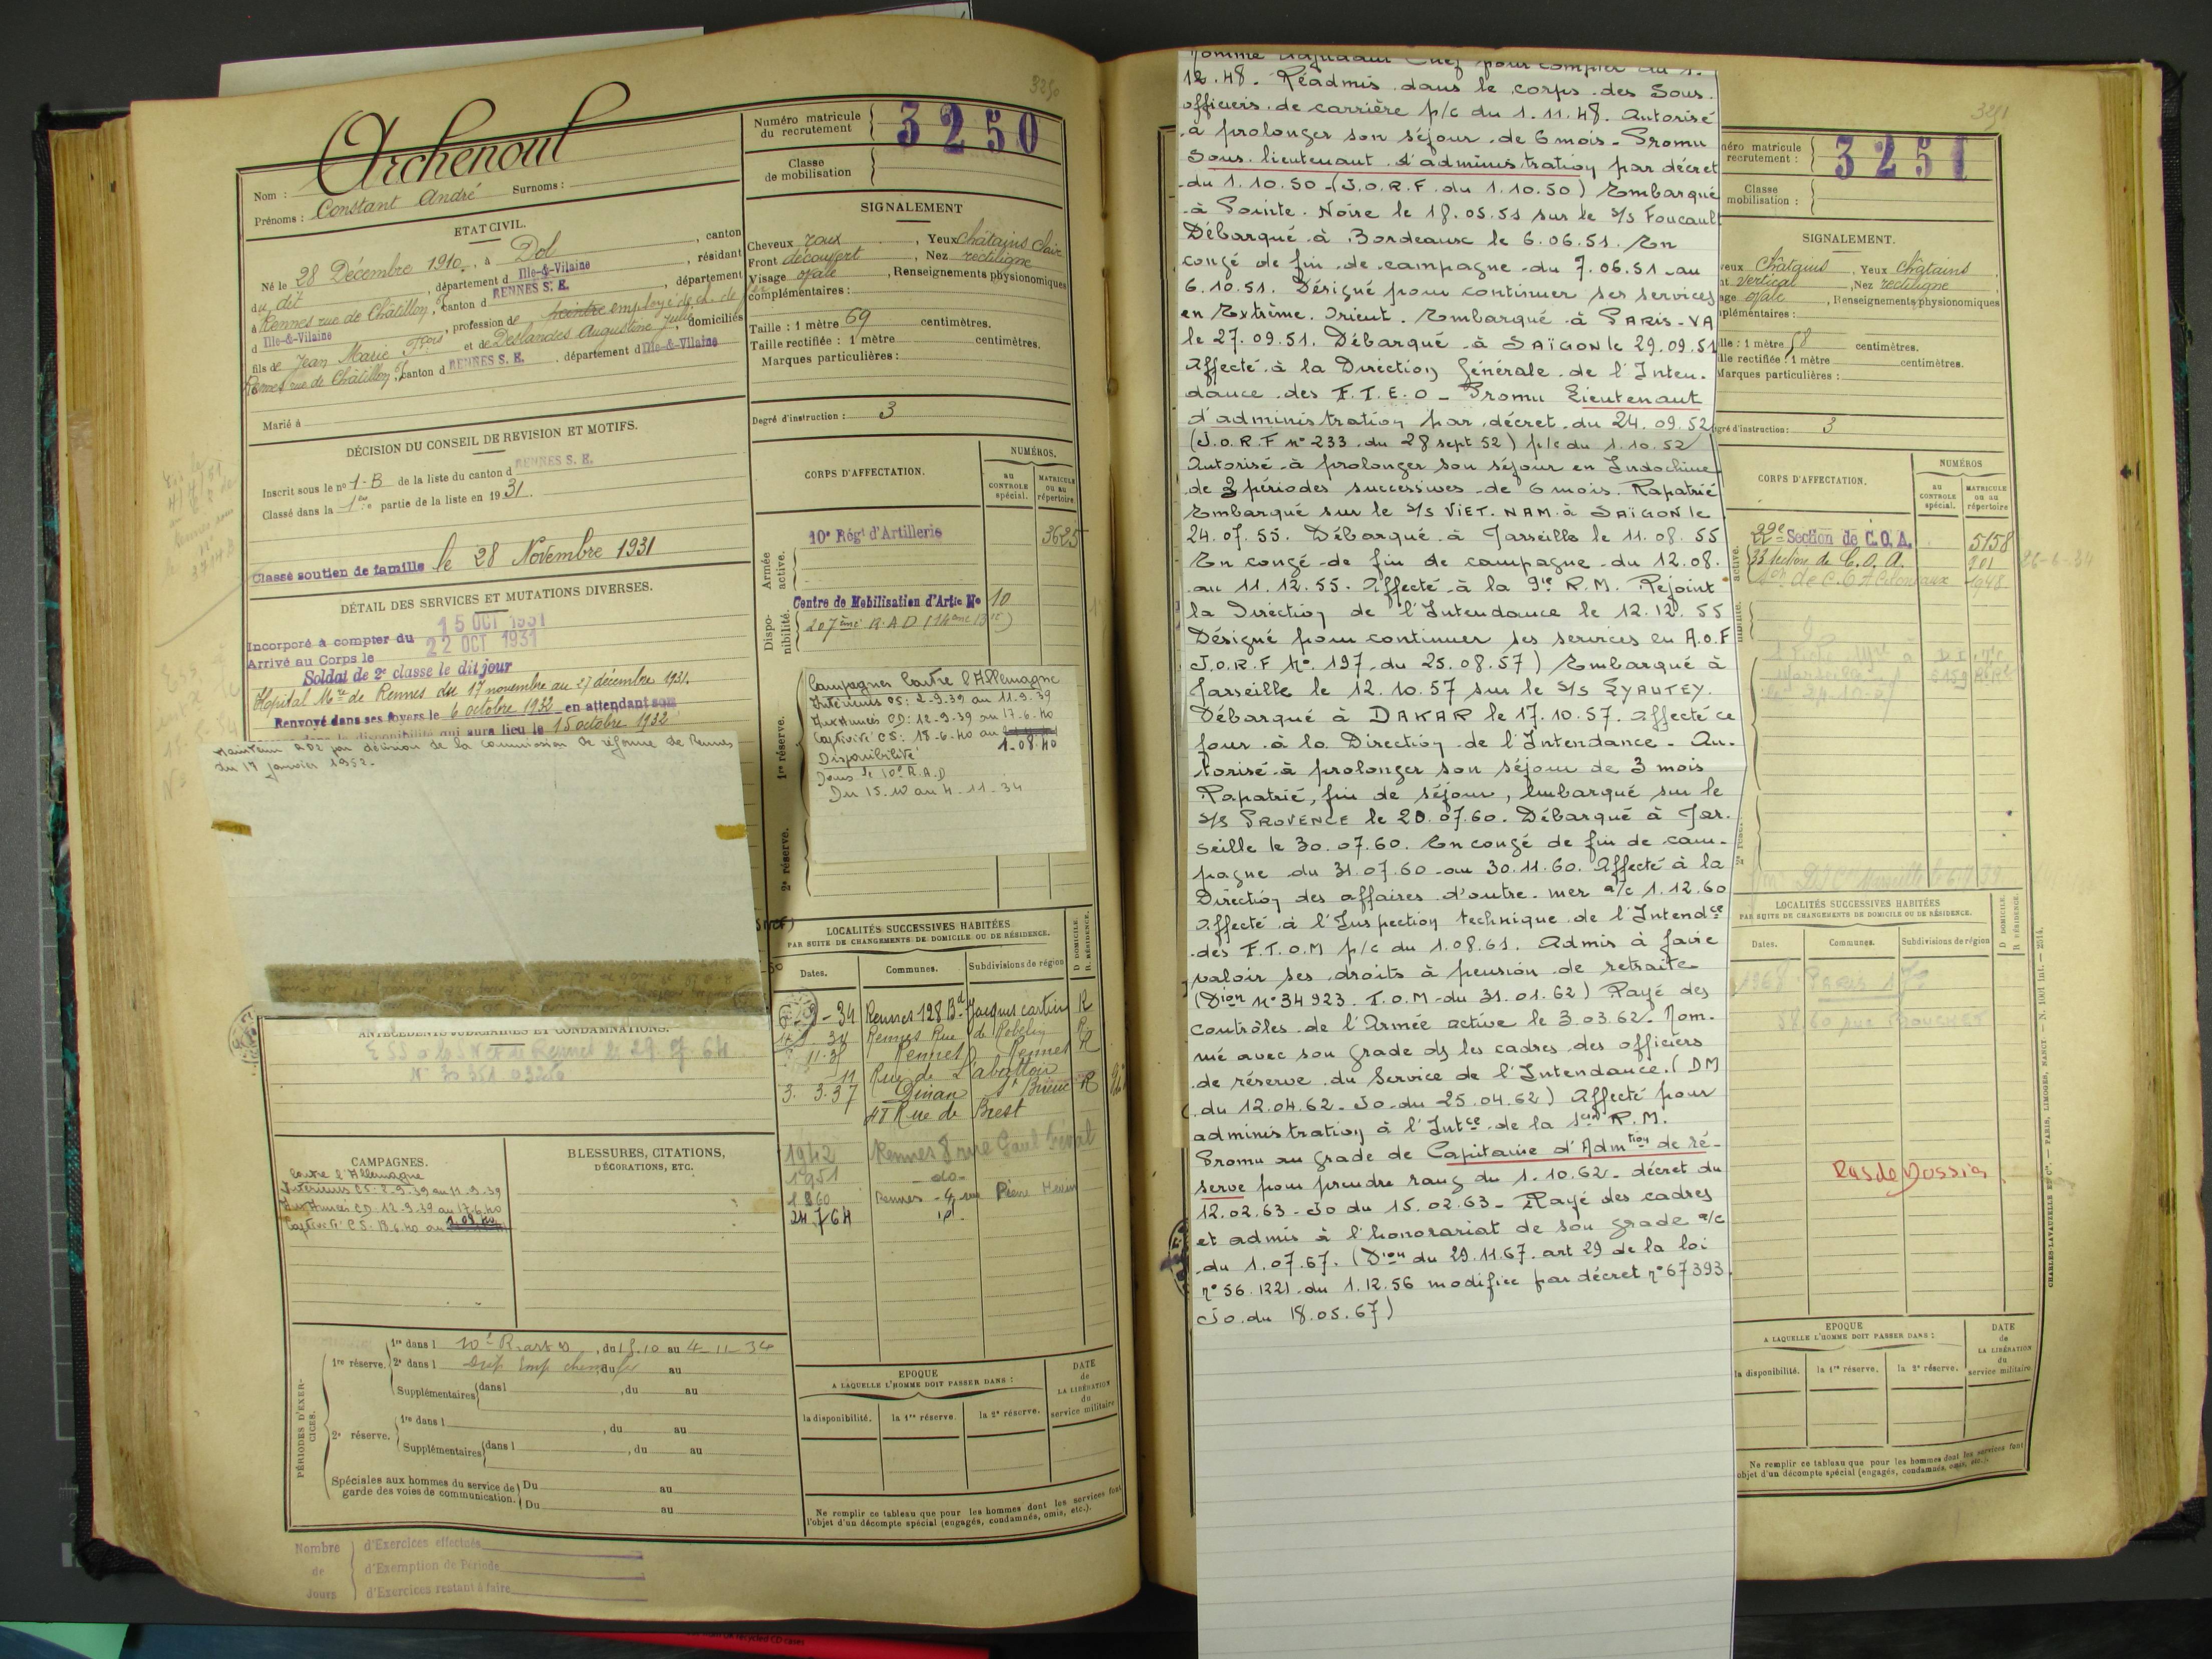 3250
Archenoul
Nom :
Prénoms : Constant André Surnoms :
Numéro matricule
du recrutement
3250
Classe
de mobilisation
ETAT CIVIL.
Né le 28 Décembre 1910, à Dol, canton
du dit, département d Ille-&-Vilaine, résidant
à Rennes rue de Châtillon, canton d RENNES S. E., département
d Ille-&-Vilaine, profession de peintre employé de ch. de fer
fils de Jean Marie Fçois et de Deslandes Augustine Julie, domiciliés
Rennes rue de Châtillon, canton d RENNES S. E., département d Ille-&-Vilaine
Marié à
SIGNALEMENT
Cheveux roux, Yeux Châtains Clair
Front découvert, Nez rectiligne
Visage ovale, Renseignements physionomiques
complémentaires :
Taille : 1 mètre 69 centimètres.
Taille rectifiée : 1 mètre centimètres.
Marques particulières :
Degré d'instruction : 3
DÉCISION DU CONSEIL DE REVISION ET MOTIFS.
Inscrit sous le nº 1-B de la liste du canton d RENNES S. E.
Classé dans la 1re partie de la liste en 1931.
Classé soutien de famille le 28 Novembre 1931
DÉTAIL DES SERVICES ET MUTATIONS DIVERSES.
Incorporé à compter du 15 OCT 1931
Arrivé au Corps le 22 OCT 1931
Soldat de 2e classe le dit jour
Hôpital Mre de Rennes du 17 novembre au 27 décembre 1931.
Renvoyé dans ses foyers le 6 octobre 1932 en attendant son
dans la disponibilité qui aura lieu le 15 octobre 1932
Maintenu RD2 par décision de la commission de réforme de Rennes
du 17 janvier 1952.
CORPS D'AFFECTATION.
NUMÉROS.
au
CONTROLE
spécial.
MATRICULE
ou au
répertoire
Armée
active.
10e Régt d'Artillerie 3625
Dispo-
nibilité.
Centre de Mobilisation d'Artie No 10
107ème R.A.D (14ème Bie)
1re réserve.
Campagnes Contre l'Allemagne
Intérieurs CS: 2-9-39 au 11-9-39
Aux Armées CD: 12-9-39 au 17-6-40
Captivité CS: 18-6-40 au
1-08-40
Disponibilité
Dans le 10e R.A.D
Du 15-10 au 4-11-34
2e réserve.
LOCALITÉS SUCCESSIVES HABITÉES
PAR SUITE DE CHANGEMENTS DE DOMICILE OU DE RÉSIDENCE.
Dates.
Communes.
Subdivisions de région
D DOMICILE.
R RÉSIDENCE.
9-34 Rennes 128 Bd Jacques Cartier R
34 Rennes Rue de Robelin R
11-35 Rennes Rennes R
11 Rue de L'abattoir
3. 3.37 Dinan St Brieuc R
48 Rue de Brest
1942 Rennes 7 rue Paul Féval
1951 do-
1960 Rennes - 4 rue Pierre
24.7.64 id-
ANTÉCÉDENTS JUDICIAIRES ET CONDAMNATIONS.
CAMPAGNES.
Contre l'Allemagne
Intérieurs CS: 2-9-39 au 11-9-39
Aux Armées CD 12-9-39 au 17-6-40
Captivité CS: 18-6-40 au 1.08.40
BLESSURES, CITATIONS,
DÉCORATIONS, ETC.
PÉRIODES D'EXER-
CICES.
1re réserve.
1re dans l 10e R. art D, du 15.10 au 4-11-34
2e dans l Disp Emp chem fer, du au
Supplémentaires dans l, du au
2e réserve.
1re dans l, du au
Supplémentaires dans l, du au
Spéciales aux hommes du service de
garde des voies de communication.
Du au
Du au
EPOQUE
A LAQUELLE L'HOMME DOIT PASSER DANS :
la disponibilité.
la 1re réserve.
la 2e réserve.
DATE
de
LA LIBÉRATION
du
service militaire
Ne remplir ce tableau que pour les hommes dont les services font
l'objet d'un décompte spécial (engagés, condamnés, omis, etc.).
Nombre
de
Jours
d'Exercices effectués
d'Exemption de Période
d'Exercices restant à faire
Nommé adjudant Chef pour compter du 1.
12.48. Réadmis dans le corps des Sous.
officiers de carrière p/c du 1.11.48. Autorisé
à prolonger son séjour de 6 mois. Promu
Sous. lieutenant d'administration par décret
du 1.10.50 (J.O.R.F. du 1.10.50) Embarqué
à Pointe. Noire le 18.05.51 sur le S/S Foucault
Débarqué à Bordeaux le 6.06.51. En
congé de fin de campagne du 7.06.51 au
6.10.51. Désigné pour continuer ses services
en Extrème. Orient. Embarqué à PARIS-VA
le 27.09.51. Débarqué à SAÏGON le 29.09.51
Affecté à la Direction Générale de l'Inten.
dance des F.T.E.O - Promu Lieutenant
d'administration par décret du 24.09.52
(J.O.R.F nº 233 du 28 sept 52) p/c du 1.10.52
Autorisé à prolonger son séjour en Indochine
de 3 périodes successives de 6 mois. Rapatrié
Embarqué sur le S/S VIET.NAM à SAÏGON le
24.07.55. Débarqué à Marseille le 11.08.55
En congé de fin de campagne du 12.08.
au 11.12.55. Affecté à la 9ie R.M. Rejoint
la Direction de l'Intendance le 12.12.55
Désigné pour continuer ses services en A.O.F
J.O.R.F Nº 197 du 25.08.57) Embarqué à
Marseille le 12.10.57 sur le S/S LYAUTEY.
Débarqué à DAKAR le 17.10.57. Affecté ce
jour à la Direction de l'Intendance. Au.
torisé à prolonger son séjour de 3 mois
Rapatrié, fin de séjour, Embarqué sur le
S/S PROVENCE le 20.07.60. Débarqué à Mar.
seille le 30.07.60. En congé de fin de cam-
pagne du 31.07.60 au 30.11.60. Affecté à la
Direction des affaires d'outre-mer a/c 1.12.60
Affecté à l'Inspection technique de l'Intendce
des F.T.O.M p/c du 1.08.61. Admis à faire
valoir ses droits à pension de retraite
(Dion Nº 34 923 T.O.M du 31.01.62) Rayé des
contrôles de l'Armée active le 3.03.62. Nom-
mé avec son grade ds les cadres des officiers
de réserve du Service de l'Intendance. (DM
du 12.04.62 - JO du 25.04.62) Affecté pour
administration à l'Intce de la 1ère R.M.
Promu au grade de Capitaine d'Admtion de ré-
serve pour prendre rang du 1.10.62 - décret du
12.02.63 - JO du 15.02.63 - Rayé des cadres
et admis à l'honorariat de son grade a/c
du 1.07.67. (Dion du 29.11.67. art 29 de la loi
nº 56.1221 du 1.12.56 modifiée par décret nº 67 393.
JO du 18.05.67)
3251
néro matricule
recrutement :
3251
Classe
mobilisation :
SIGNALEMENT.
eux Châtains, Yeux Châtains
nt vertical, Nez rectiligne
age ovale, Renseignements physionomiques
plémentaires :
ille : 1 mètre 58 centimètres.
ille rectifiée : 1 mètre centimètres.
Marques particulières :
gré d'instruction : 3
CORPS D'AFFECTATION.
NUMÉROS
au
CONTROLE
spécial.
MATRICULE
ou au
répertoire
active.
22e Section de C.O.A. 5158
33 Section de C.O.A. 901 26-6-34
Son de C.O.A Coloniaux 1948
2e réserve.
LOCALITÉS SUCCESSIVES HABITÉES
PAR SUITE DE CHANGEMENTS DE DOMICILE OU DE RÉSIDENCE.
Dates.
Communes.
Subdivisions de région
D DOMICILE.
R RÉSIDENCE.
1968 Paris 17e
Pas de Dossier
EPOQUE
A LAQUELLE L'HOMME DOIT PASSER DANS :
la disponibilité.
la 1re réserve.
la 2e réserve.
DATE
de
LA LIBÉRATION
du
service militaire
Ne remplir ce tableau que pour les hommes dont les services font
objet d'un décompte spécial (engagés, condamnés, omis, etc.).
CHARLES-LAVAUZELLE ET Cie. — PARIS, LIMOGES, NANCY. — N. 1001 int. — 2514.